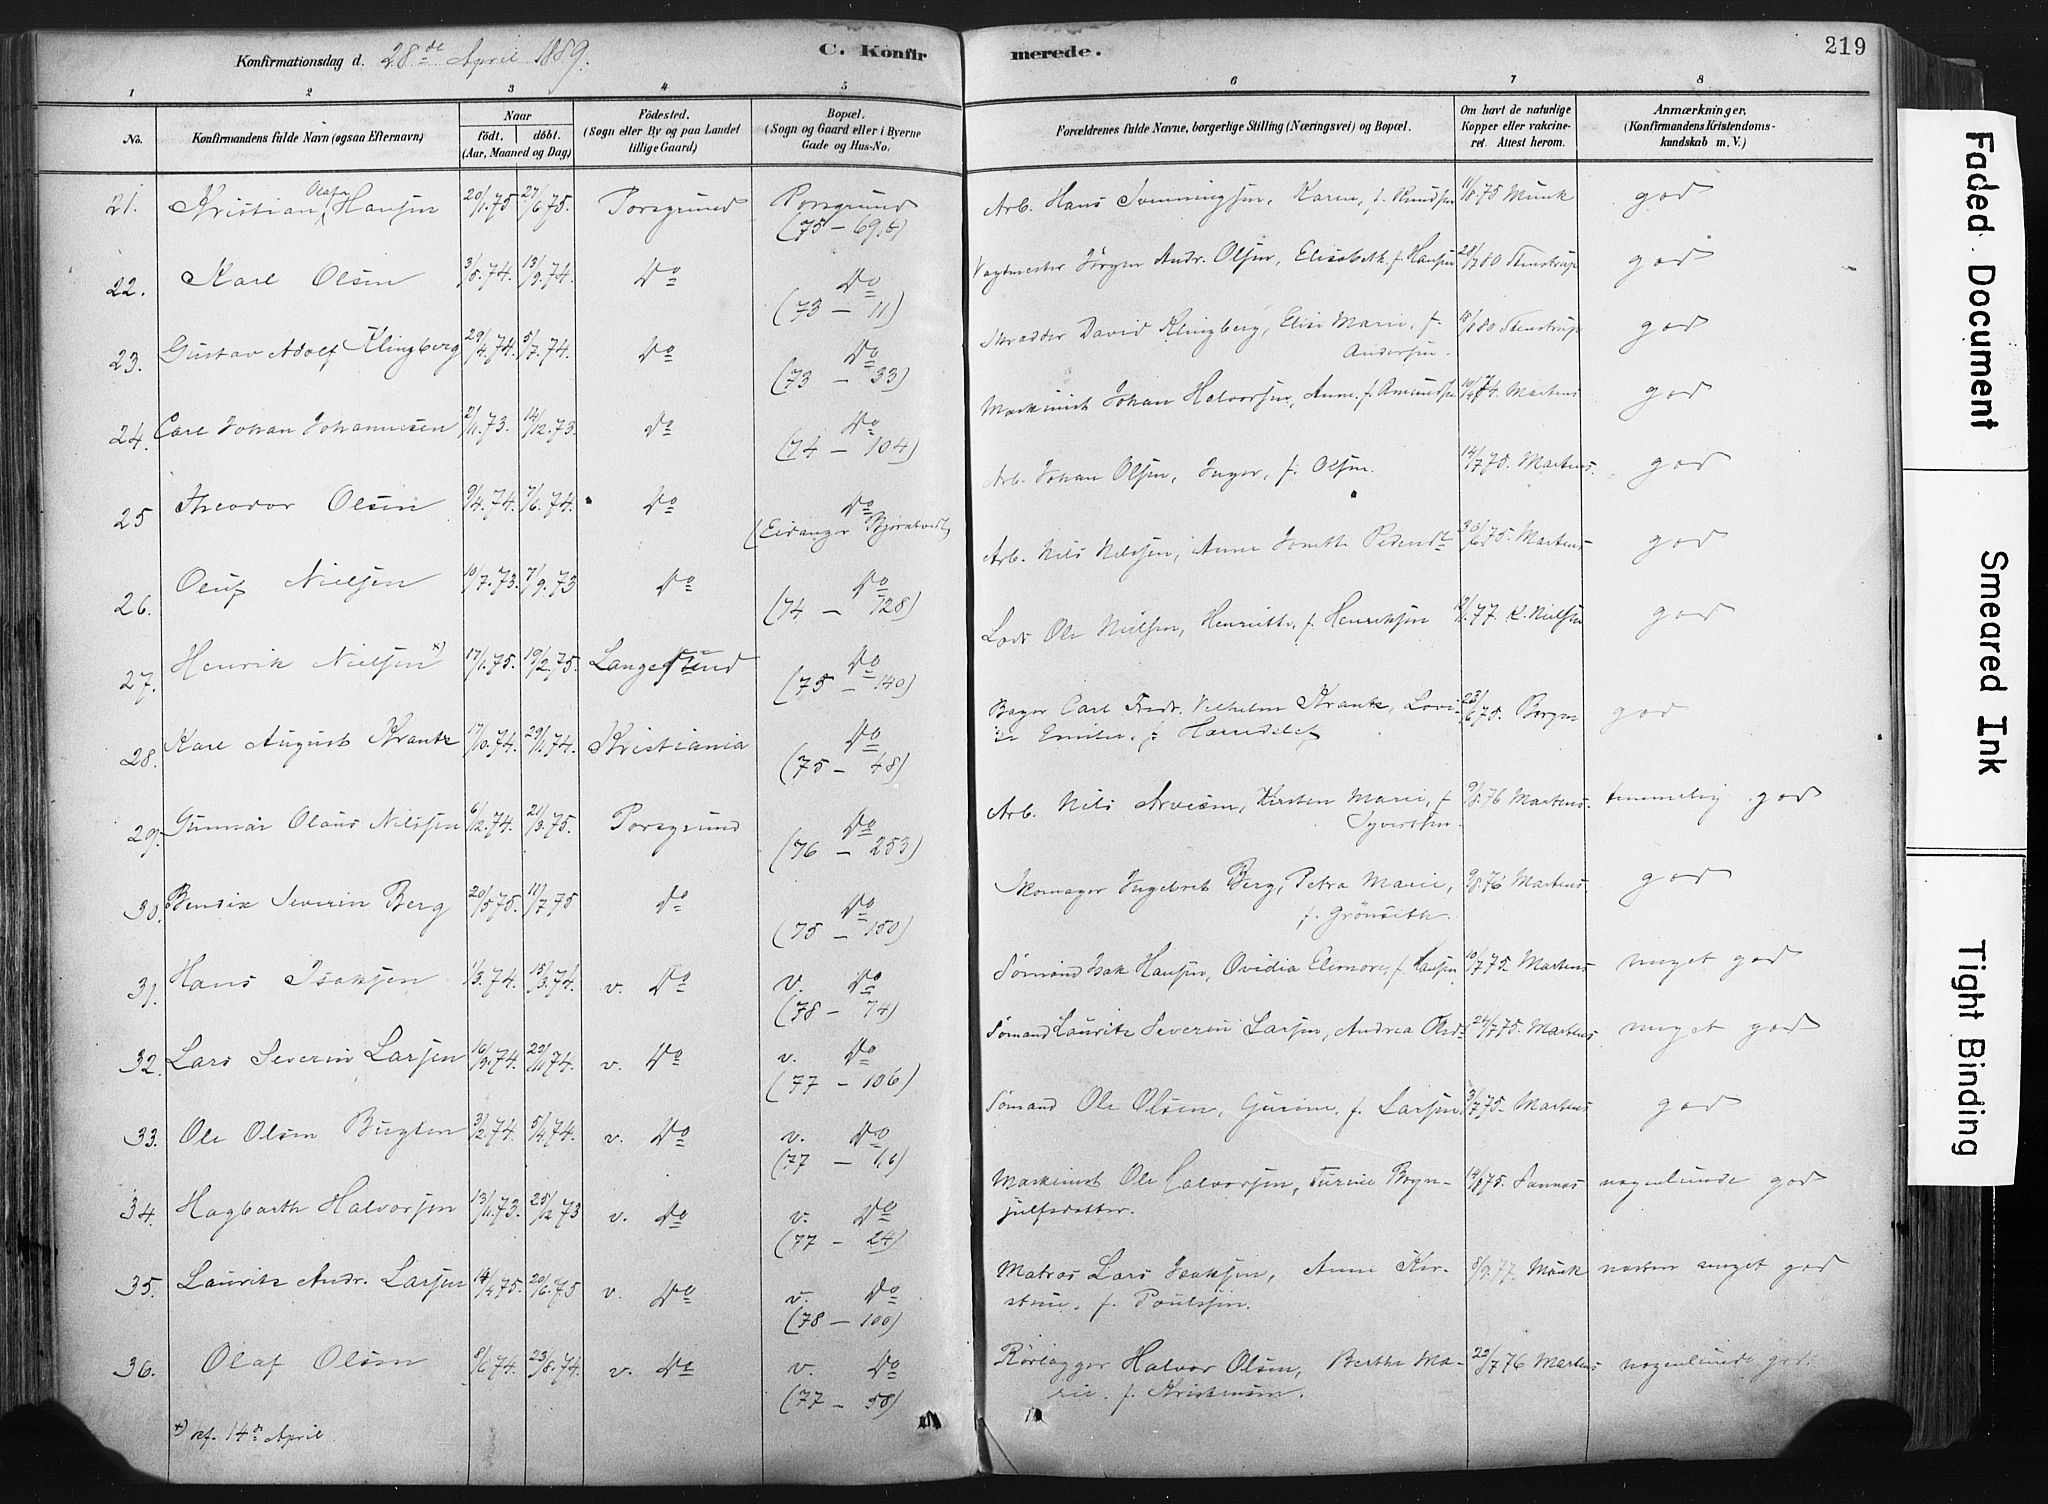 Konfirmationsdag d. 28de April 1889.
C. Konfirmerede.
219
1 2 3 4 5 6 7 8
No.
Konfirmandens fulde Navn (ogsaa Efternavn)
Naar
födt. döbt.
(Aar, Maaned og Dag)
Födested.
(Sogn eller By og paa Landet
tillige Gaard)
Bopæl.
(Sogn og Gaard eller i Byerne
Gade og Hus-No.
Forældrenes fulde Navne, borgerlige Stilling (Næringsvei) og Bopæl.
Om havt de naturlige
Kopper eller vakcine-
ret. Attest herom.
Anmærkninger.
(Konfirmandens Kristendoms-
kundskab m. V.)
21. Kristian Olafu Hansen 20/1.75 27/6.75. Porsgrund Porsgrund Arb. Hans Svenningsen, Karen, f. Knudsen 11/8.75 Munk god
(75 — 69,6)
22. Karl Olsen 3/8.74. 13/9.74. Do Do Vagtmester Jörgen Andr. Olsen, Elisabeth f. Hansen 28/7.80 Stenstrup god
(73 — 11)
23. Gustav Adolf Klingberg 29/4.74. 5/7.74. Do Do Skrædder David Klingberg, Elise Marie, f. Andersen. 80 Stenstrup god
(73 — 33)
24. Carl Johan Johannesen 2/11.73. 14/12.73. Do Do Maskinist Johan Halvorsen, Anne, f. Amundsen 74. Martens god
(74 — 104)
25 Theodor Olsen 9/4.74. 7/6.74. Do Do Arb. Johan Olsen, Inger, f. Olsen. 14/7.75. Martens. god
(Eidanger Bjørntvedt)
26. Oluf Nielsen 10/7.73. 7/9.73 Do Do Arb. Nils Nilssen, Anne Jonette Pedersdt 75. Martens god
(74 — 128)
27. Henrik Nielsen x) 17/1.75. 19/2.75. Langesund Do Lods Ole Nielsen, Henriette, f. Henriksen 77. K. Nielsen god
(75 — 140)
28. Karl August Krantz 17/10.74. 29/11.74. Kristiania Do Bager Carl Fredr. Vilhelm Krantz, Lovi-
se Emilie, f. 23/6.75. Borgen god
(75 — 48)
29. Gunnar Olaus Nilssen 6/12.74. 21/3.75. Porsgrund Do Arb. Nils Arvesen, Kirsten Marie, f. Syvertsen. 9/8.76 Martens. temmelig god
(76 — 253)
30. Bendix Severin Berg 20/5.75. 11/7.75 do Do Skomager Ingebret Berg, Petra Marie,
f. Grönseth. 9/8.76 Martens. god
(75 — 150)
31. Hans Isaksen 1/3.74. 15/3.74. v. Do v. Do Sömand Isak Hansen, Ovidia Elenore, f. Hansen 10/7.75. Martens meget god
(78 — 74)
32. Lars Severin Larsen 16/9.74. 29/11.74. v. Do v. Do Sömand Lauritz Severin Larsen, Andrea Olsdt 24/7.75. Martens. meget god
(77 — 106)
33. Ole Olsen Bugten 3/2.74. 5/4.74. v. Do v. Do Sömand Ole Olsen, Gurine, f. Larsen 3/7.75. Martens god
(77 — 1,6)
34. Hagbarth Halvorsen 13/11.73. 25/12.73 v. Do v. Do Maskinist Ole Halvorsen, Turine Bryn-
julfsdatter. 14/8.75. Sannes nogenlunde god
(77 — 24)
35. Lauritz Andr. Larsen 14/4.75. 20/6.75 v. Do v. Do Matros Lars Isaksen, Anne Kir-
stine, f. Poulssen. 8/9.77. Munk næsten meget god
(78 — 100)
36. Olaf Olsen 8/6.74. 23/8.74. v. Do v. Do Rörlægger Halvor Olsen, Berthe Ma-
rie, f. Kristensen. 22/7.76 Martens nogenlunde god.
(77 — 58)
x) kf. 14de April
Faded Document
Smeared Ink
Tight Binding